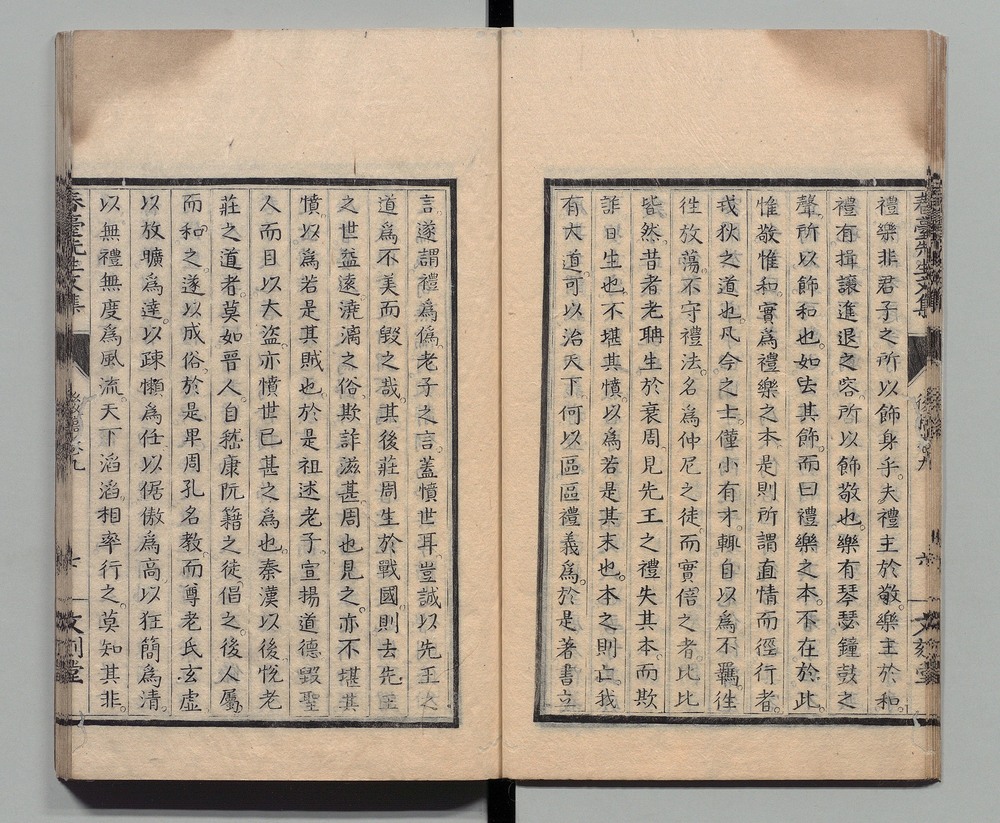 禮樂非君子之所以飾身乎。夫禮主於敬。樂主於和。
禮有揖讓進退之容。所以飾敬也。樂有琴瑟鐘鼓之
聲。所以飾和也。如去其飾。而曰禮樂之本。不在於此。
惟敬惟和。實爲禮樂之本。是則所謂直情而徑行者。
戎狄之道也。凡今之士。僅小有才。輒自以爲不羈。徃
徃放蕩。不守禮法。名爲仲尼之徒。而實倍之者。比比
皆然。昔者老聃生於衰周。見先王之禮失其本。而欺
詐日生也。不堪其憤。以爲若是其末也。本之則亡。我
有大道。可以治天下。何以區區禮義爲。於是著書立
言。遂謂禮爲僞。老子之言。蓋憤世耳。豈誠以先王之
道爲不美而毀之哉。其後莊周生於戰國。則去先王
之世益遠。澆漓之俗。欺詐滋甚。周也見之。亦不堪其
憤。以爲若是其賊也。於是祖述老子。宣揚道德。毀聖
人而目以大盜。亦憤世已甚之爲也。秦漢以後。悅老
莊之道者。莫如晉人。自嵇康阮籍之徒。倡之。後人屬
而和之。遂以成俗。於是畢周孔名教。而尊老氏玄虛
以放曠爲達。以疎懶爲任。以倨傲爲高。以狂簡爲清。
以無禮無度爲風流。天下滔滔。相率行之。莫知其非。
春臺先生文集
後稿
九
六
春臺先生文集
後稿
九
七
文刻堂